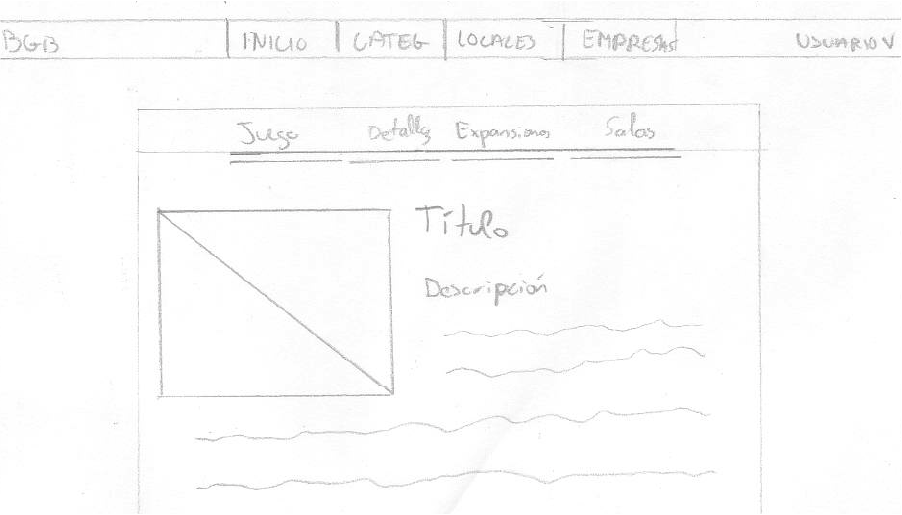 BGB INICIO CATEG LOCALES EMPRESAS USUARIO V
Juego Detalles Expansiones Salas
Título
Descripción